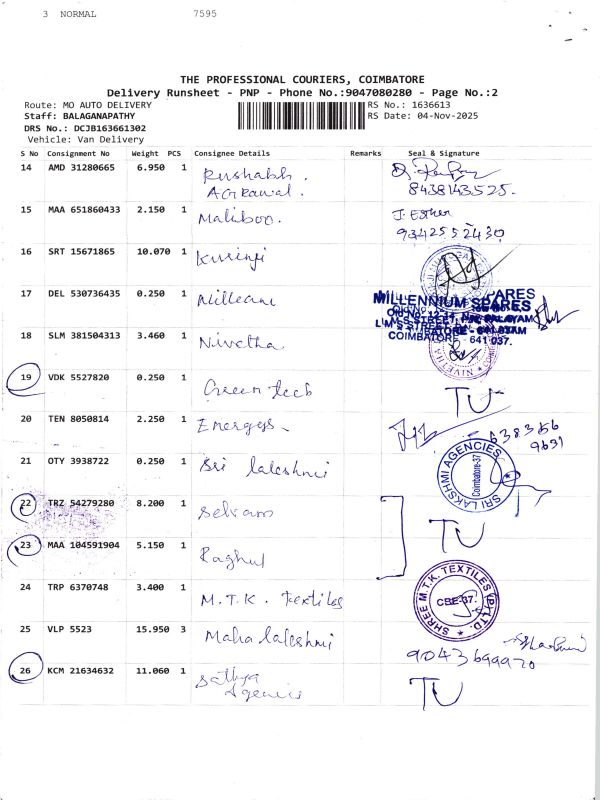 3 NORMAL 7595
THE PROFESSIONAL COURIERS, COIMBATORE
Delivery Runsheet - PNP - Phone No.:9047080280 - Page No.:2
Route: MO AUTO DELIVERY RS No.: 1636613
Staff: BALAGANAPATHY RS Date: 04-Nov-2025
DRS No.: DCJB163661302
Vehicle: Van Delivery
S No Consignment No Weight PCS Consignee Details Remarks Seal & Signature
14 AMD 31280665 6.950 1 Rushabh.
Agrawal. 8438143525.
15 MAA 651860433 2.150 1 Maliboo. J. Esther
9342552430
16 SRT 15671865 10.070 1 Kurinji
17 DEL 530736435 0.250 1
MILLENNIUM SPARES
COIMBATORE - 641 037.
18 SLM 381504313 3.460 1 Nivetha NIVETHA
19 VDK 5527820 0.250 1 Green tech TU
20 TEN 8050814 2.250 1 638366
9691
21 OTY 3938722 0.250 1 Sri lakshmi SRI LAKSHMI AGENCIES Coimbatore-37
22 TRZ 54279280 8.200 1 Selvam TU
23 MAA 104591904 5.150 1 Raghul
24 TRP 6370748 3.400 1 M.T.K. Textiles SHREE M.T.K. TEXTILES (P) LTD. CBE-37.
25 VLP 5523 15.950 3 Maha lakshmi
9043699970
26 KCM 21634632 11.060 1 Sathya
Agencies TU